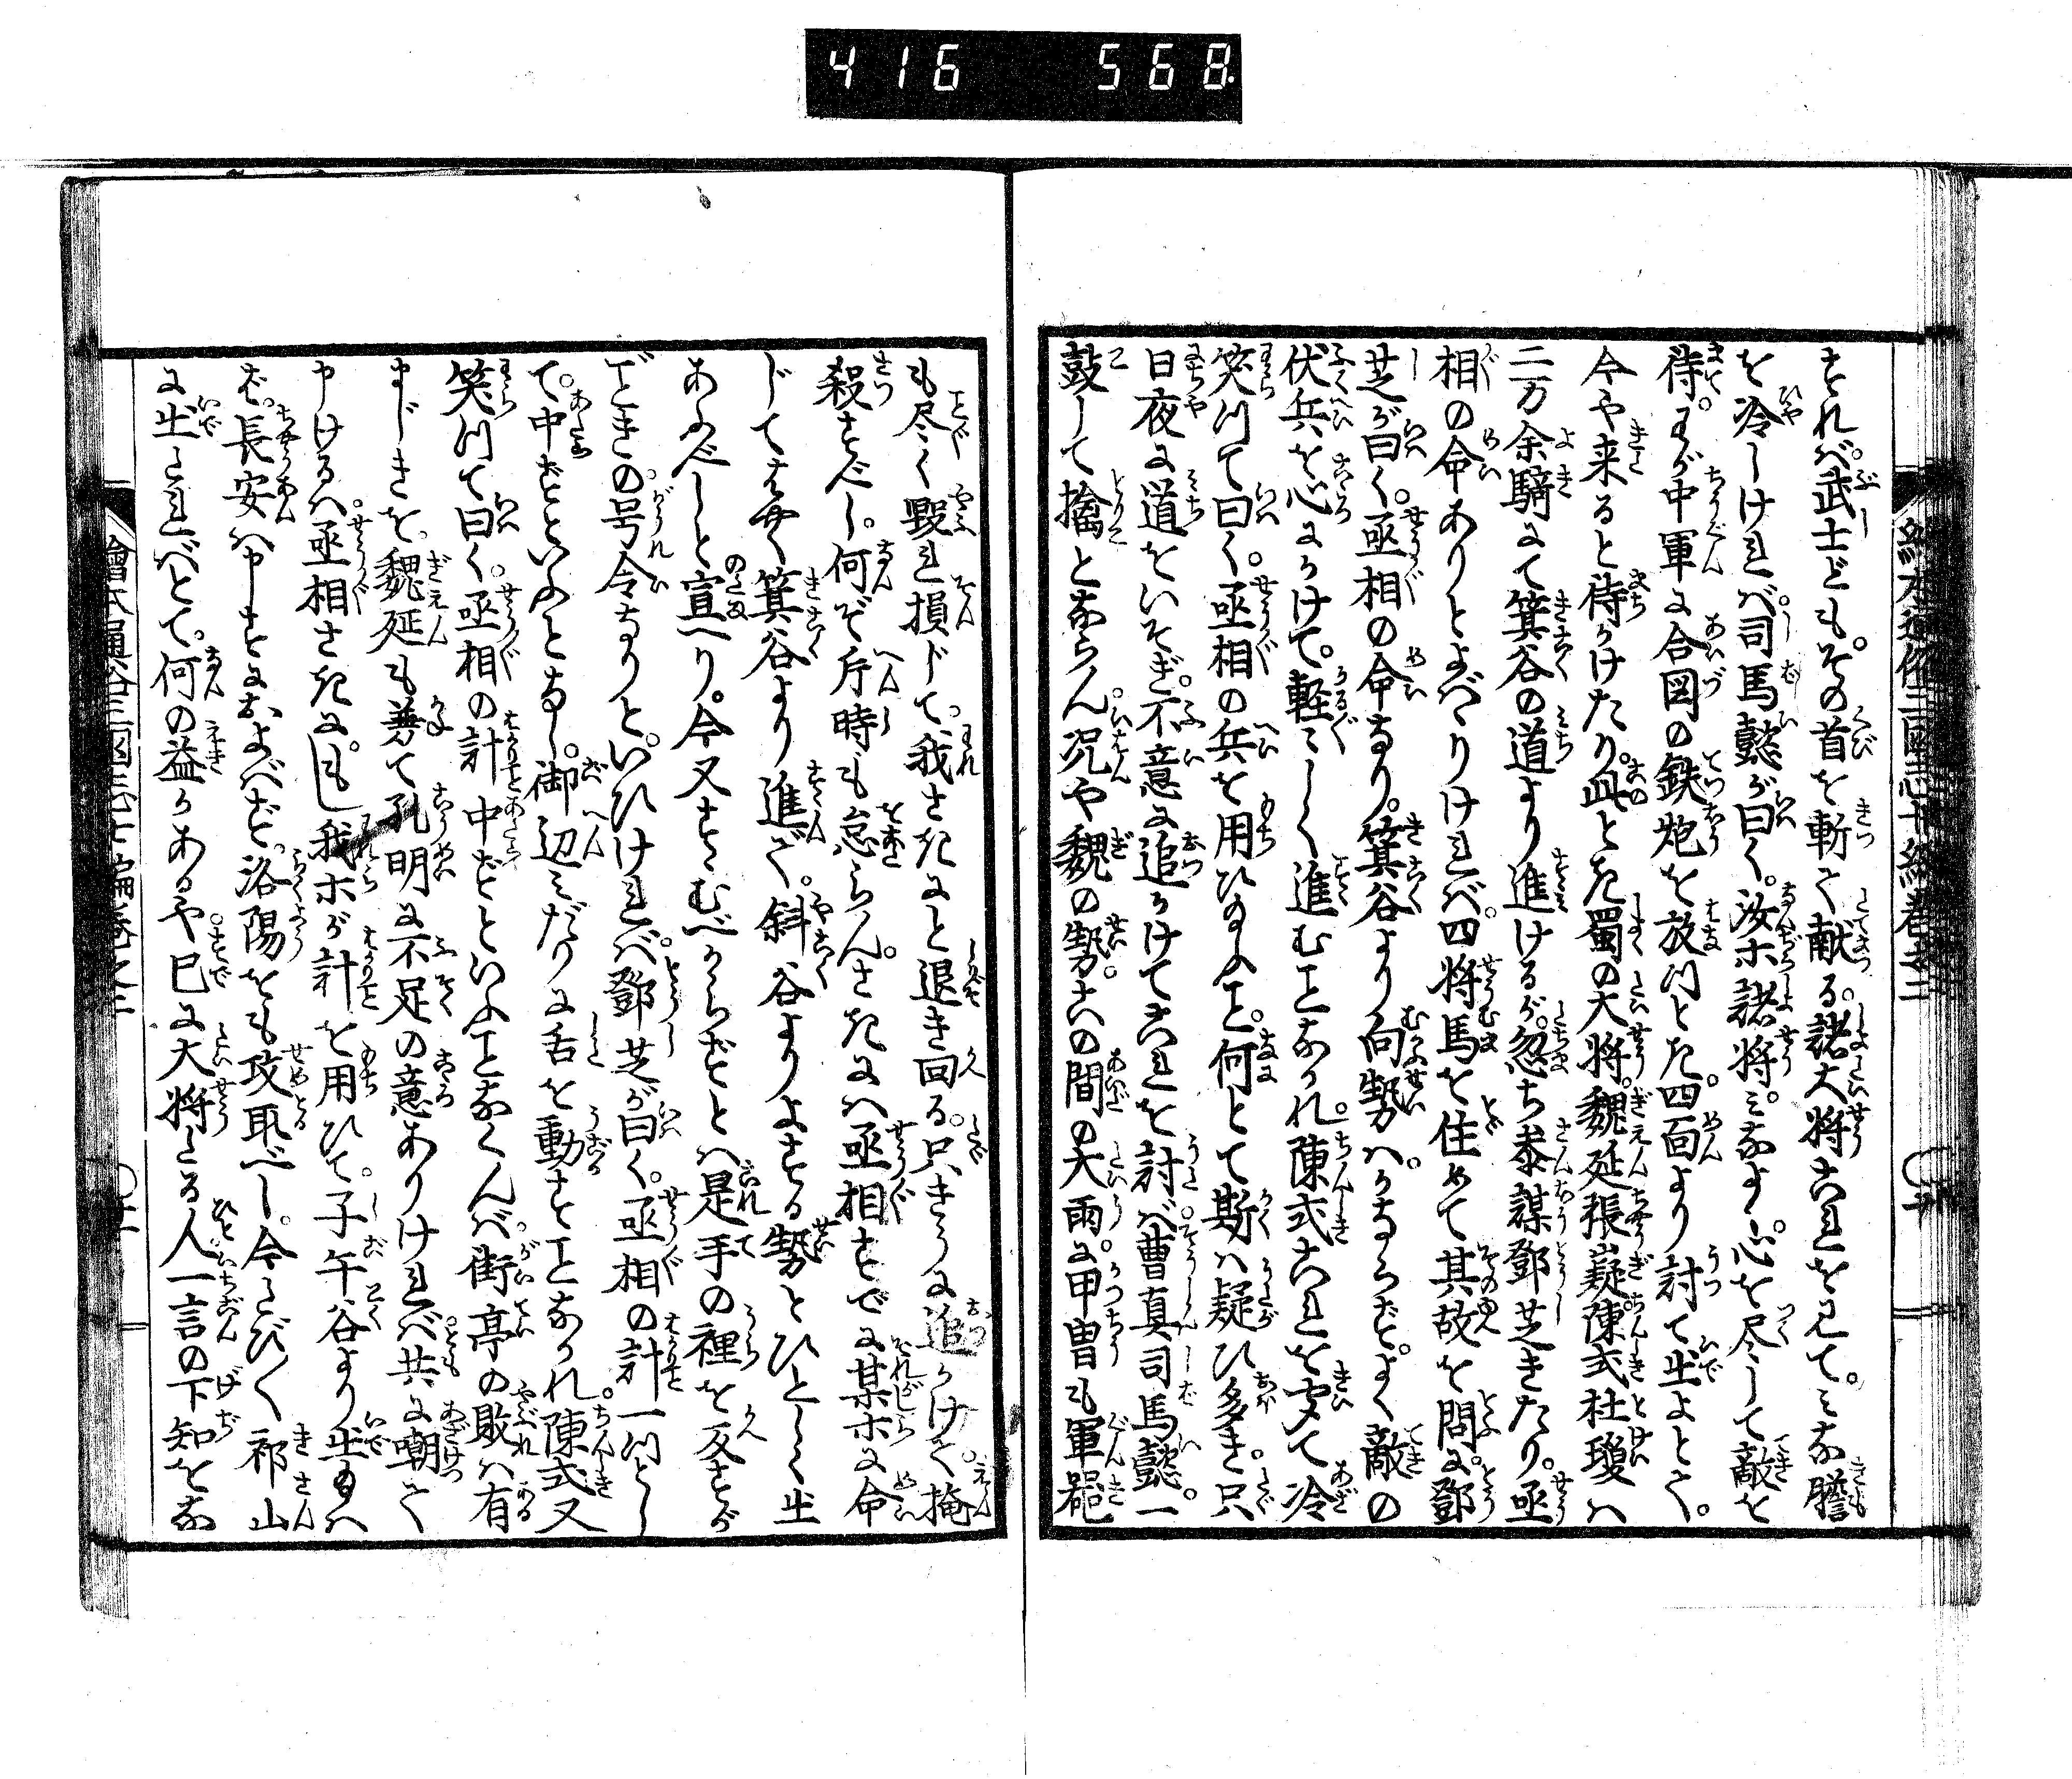 416 568
それバ。武士ども。その首を斬て献る。諸大将これを見て。ミな膽
を冷しけれバ。司馬懿が曰く。汝ホ諸将。ミなよく心を尽して敵を
待。わが中軍に合図の鉄炮を放つとき。四面より討て出よとて。
今や来ると待かけたり。此とき蜀の大将。魏延張嶷陳式杜瓊ハ
二万余騎にて箕谷の道より進けるが。忽ち参謀鄧芝きたり。丞
相の命ありとよバりけれバ。四将馬を住めて其故を問に。鄧
芝が曰く。丞相の命なり。箕谷より向勢ハ。かならずよく敵の
伏兵を心にかけて。軽〻しく進むことなかれ。陳式これを聞て冷
笑つて曰く。丞相の兵を用ひ給ふこと。何とて斯ハ疑ひ多き。只
日夜に道をいそぎ。不意に追かけてこれを討バ曹真司馬懿。一
鼓して擒とならん。况や魏の勢。この間の大雨に。甲冑も軍器
も尽く毀れ損ドて。我さきにと退き回る。只きうに追かけて。掩
殺すべし。何ぞ片時も怠らん。さきにハ丞相すでに某ホに命
じてはやく箕谷より進ミ。斜谷よりよする勢とひとしく出
あふべしと宣へり。今又すゝむべからずとハ是手の裡を反すが
ごときの号令なりと。いひけれバ。鄧芝が曰く。丞相の計一つとし
て。中ずといふとなし。御辺ミだりに舌を動すことなかれ。陳式又
笑つて曰く。丞相の計中ずといふことなくんバ。街亭の敗ハ有
まじきを。魏延も兼て孔明に不足の意ありけれバ。共に嘲て
申けるハ。丞相さきに。もし我ホが計を用ひて。子午谷より出給ハ
ば。長安ハ申すにおよバず。洛陽をも攻取べし。今しバ〳〵祁山
に出したれバとて。何の益かあるや。已に大将たる人。一言の下知をな